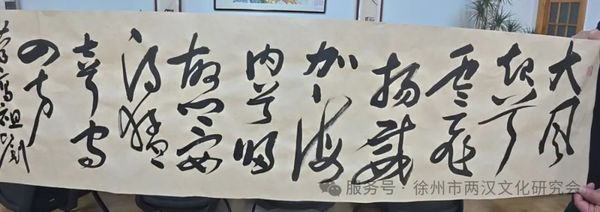 大风
起兮
雲飛
扬威
加海
内兮归
故乡安
得猛
士兮守
四方
高祖
服务号·徐州市两汉文化研究会